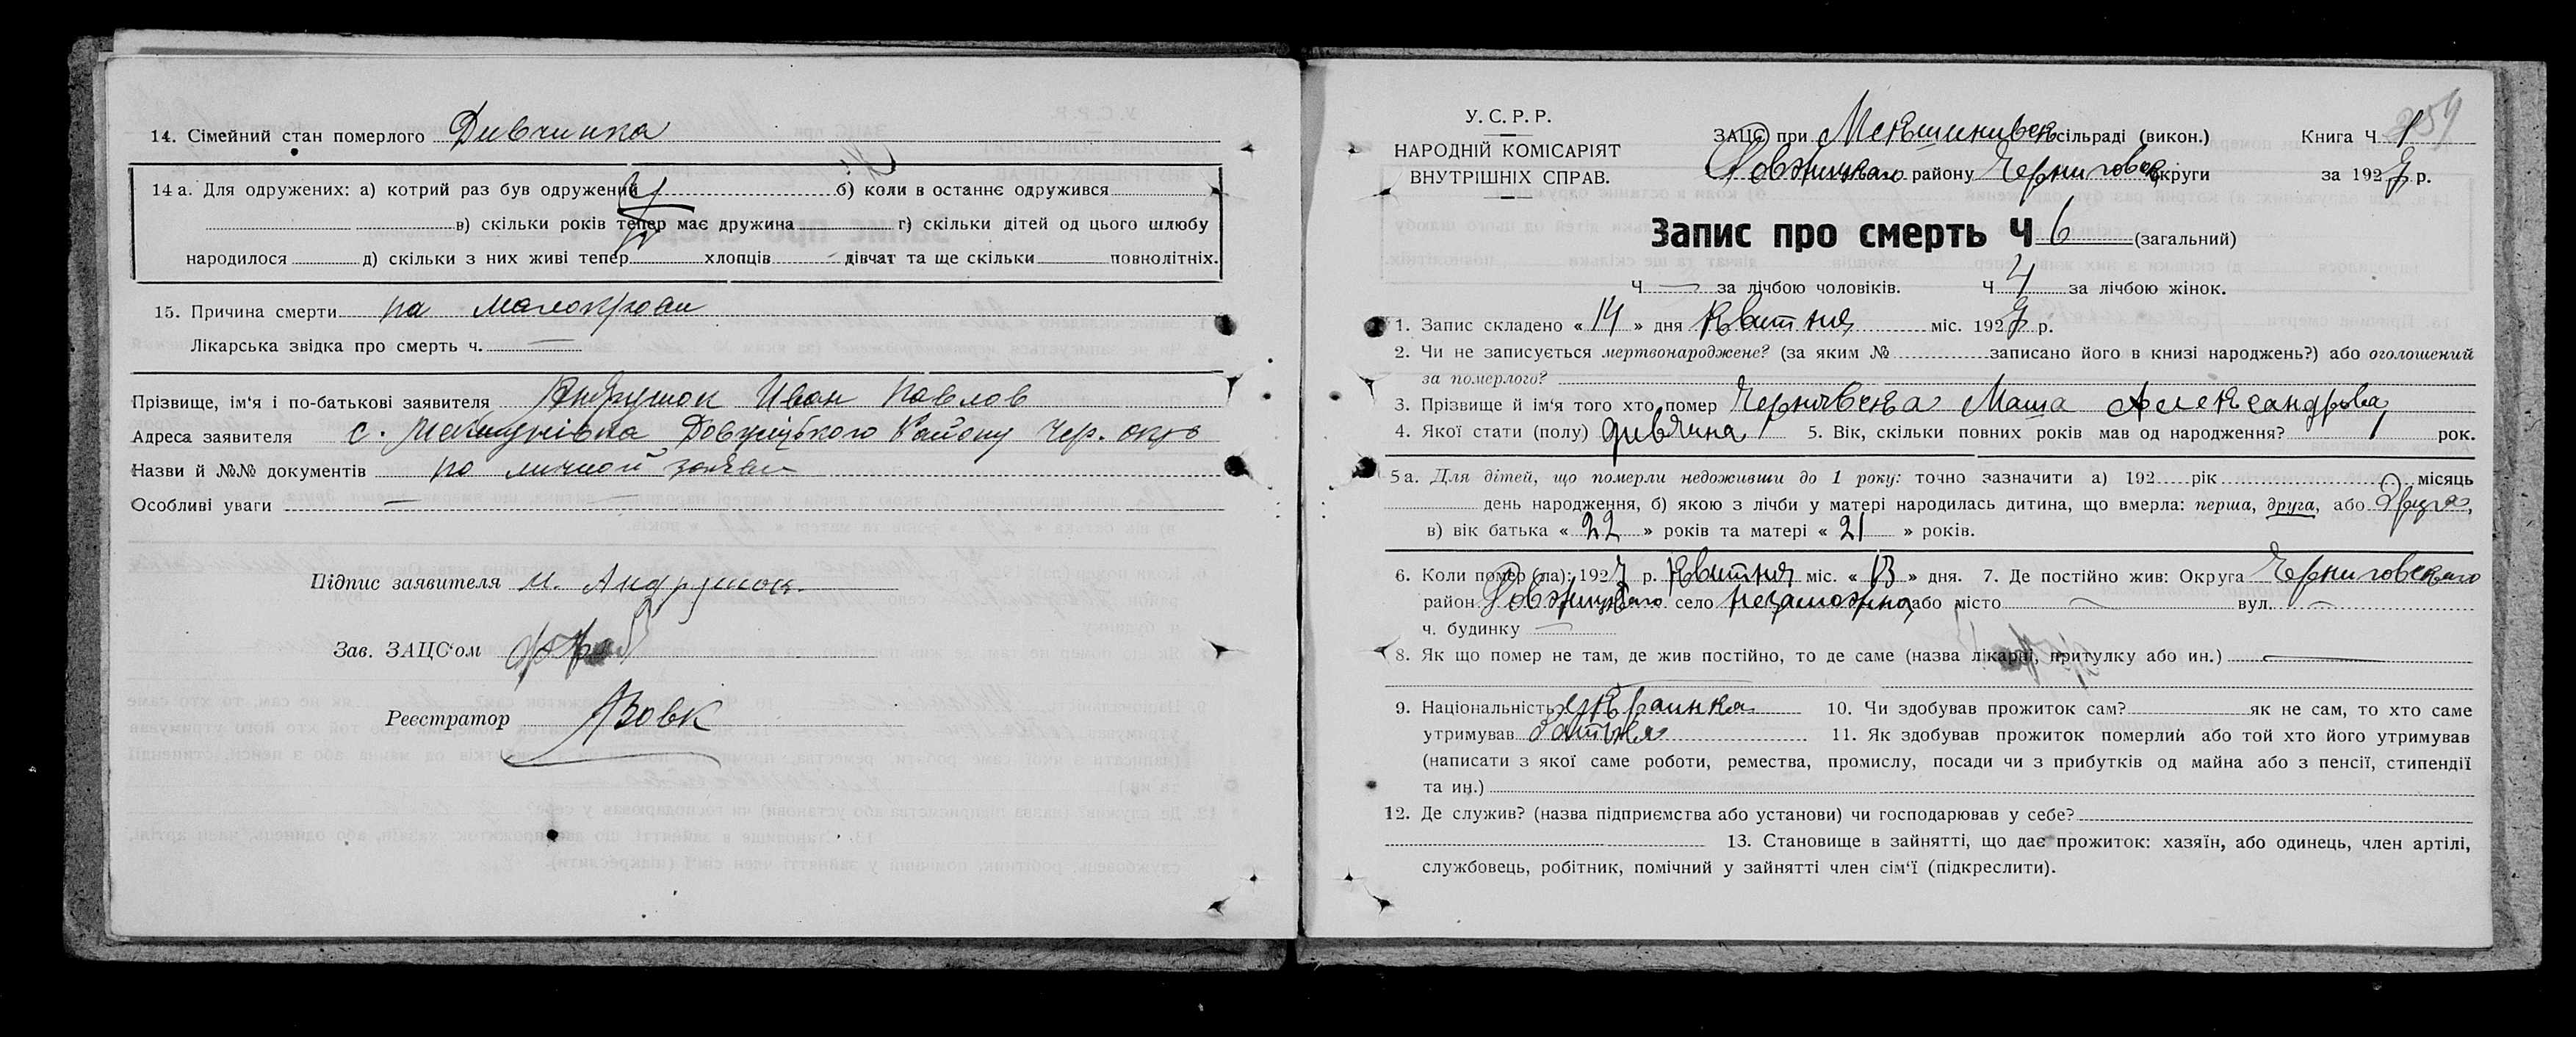 14. Сімейний стан померлого Дивчинка
14 а. Для одружених: а) котрий раз був одружений б) коли в останнє одружився
в) скільки років тепер має дружина г) скільки дітей од цього шлюбу
народилося д) скільки з них живі тепер хлопців дівчат та ще скільки повнолітніх.
15. Причина смерти на малокрови
Лікарська звідка про смерть ч. —
Прізвище, ім'я і по-батькові заявителя Андрушок Иван Павлов
Адреса заявителя с. Довжицького Району Чер. окр
Назви й №№ документів по личной заяви
Особливі уваги —
Підпис заявителя И. Андрушок
Зав. ЗАЦС'ом
Реєстратор Вовк
У. С. Р. Р.
НАРОДНІЙ КОМІСАРІЯТ
ВНУТРІШНІХ СПРАВ.
259
ЗАЦС при сільраді (викон.) Книга Ч. 1
Довжицького району Черниговск округи за 1927 р.
Запис про смерть Ч 6 (загальний)
Ч — за лічбою чоловіків. Ч 4 за лічбою жінок.
1. Запис складено « 14 » дня Квитня міс. 1927 р.
2. Чи не записується мертвонароджене? (за яким № записано його в книзі народжень?) або оголошений
за померлого?
3. Прізвище й ім'я того хто помер Маша Александрова
4. Якої стати (полу) дивчина 5. Вік, скільки повних років мав од народження? 1 рок.
5 а. Для дітей, що померли недоживши до 1 року: точно зазначити а) 192 рік місяць
день народження, б) якою з лічби у матері народилась дитина, що вмерла: перша, друга, або Друга,
в) вік батька « 22 » років та матері « 21 » років.
6. Коли помер (ла): 1927 р. Квитня міс. « 13 » дня. 7. Де постійно жив: Округа Черниговського
район Довжицького село або місто — вул. —
ч. будинку —
8. Як що помер не там, де жив постійно, то де саме (назва лікарні, притулку або ин.) —
9. Національність украинка 10. Чи здобував прожиток сам? як не сам, то хто саме
утримував батько 11. Як здобував прожиток померлий або той хто його утримував
(написати з якої саме роботи, ремества, промислу, посади чи з прибутків од майна або з пенсії, стипендії
та ин.)
12. Де служив? (назва підприємства або установи) чи господарював у себе?
13. Становище в зайнятті, що дає прожиток: хазяїн, або одинець, член артілі,
службовець, робітник, помічний у зайнятті член сім'ї (підкреслити).